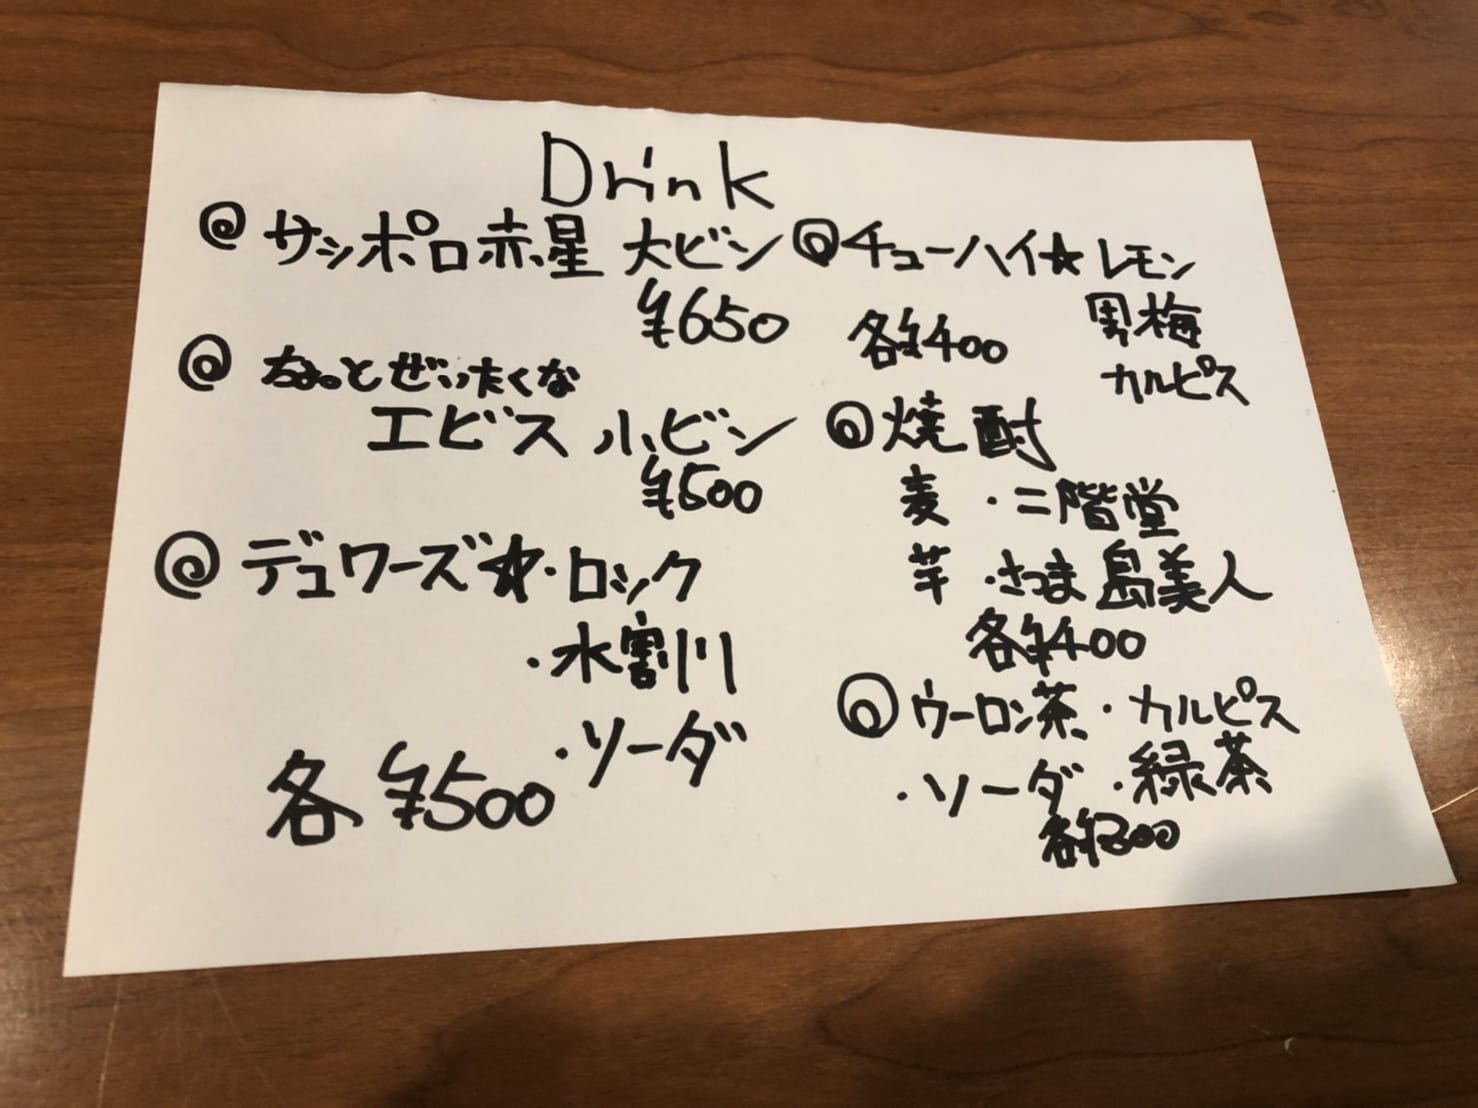 Drink
◎サッポロ赤星 大ビン
¥650
◎ちょっとぜいたくな
エビス 小ビン
¥500
◎デュワーズ☆・ロック
・水割り
・ソーダ
各¥500
◎チューハイ★レモン
男梅
カルピス
各¥400
◎焼酎
麦・二階堂
芋・さつま島美人
各¥400
◎ウーロン茶・カルピス
・ソーダ・緑茶
各¥300